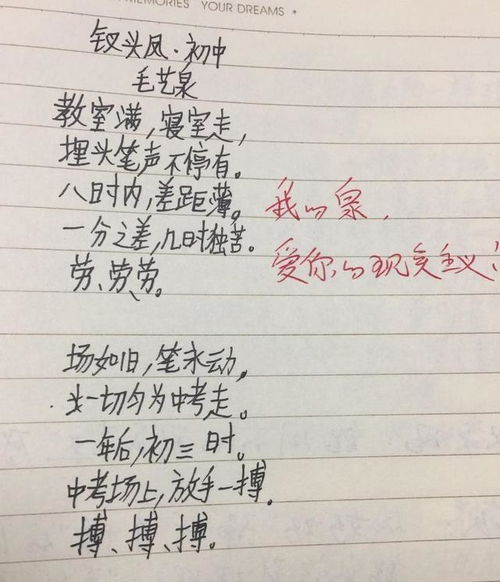 MEMORIES YOUR DREAMS
钗头凤·初中
毛艺泉
教室满,寝室走,
埋头笔声不停有。
八时内,差距薄。
一分之差,几时独苦。
劳、劳、劳。
我的泉,
爱你的现实主义!
场如旧,笔永动,
一切均为中考走。
一年后,初三时。
中考场上,放手一搏。
搏、搏、搏。